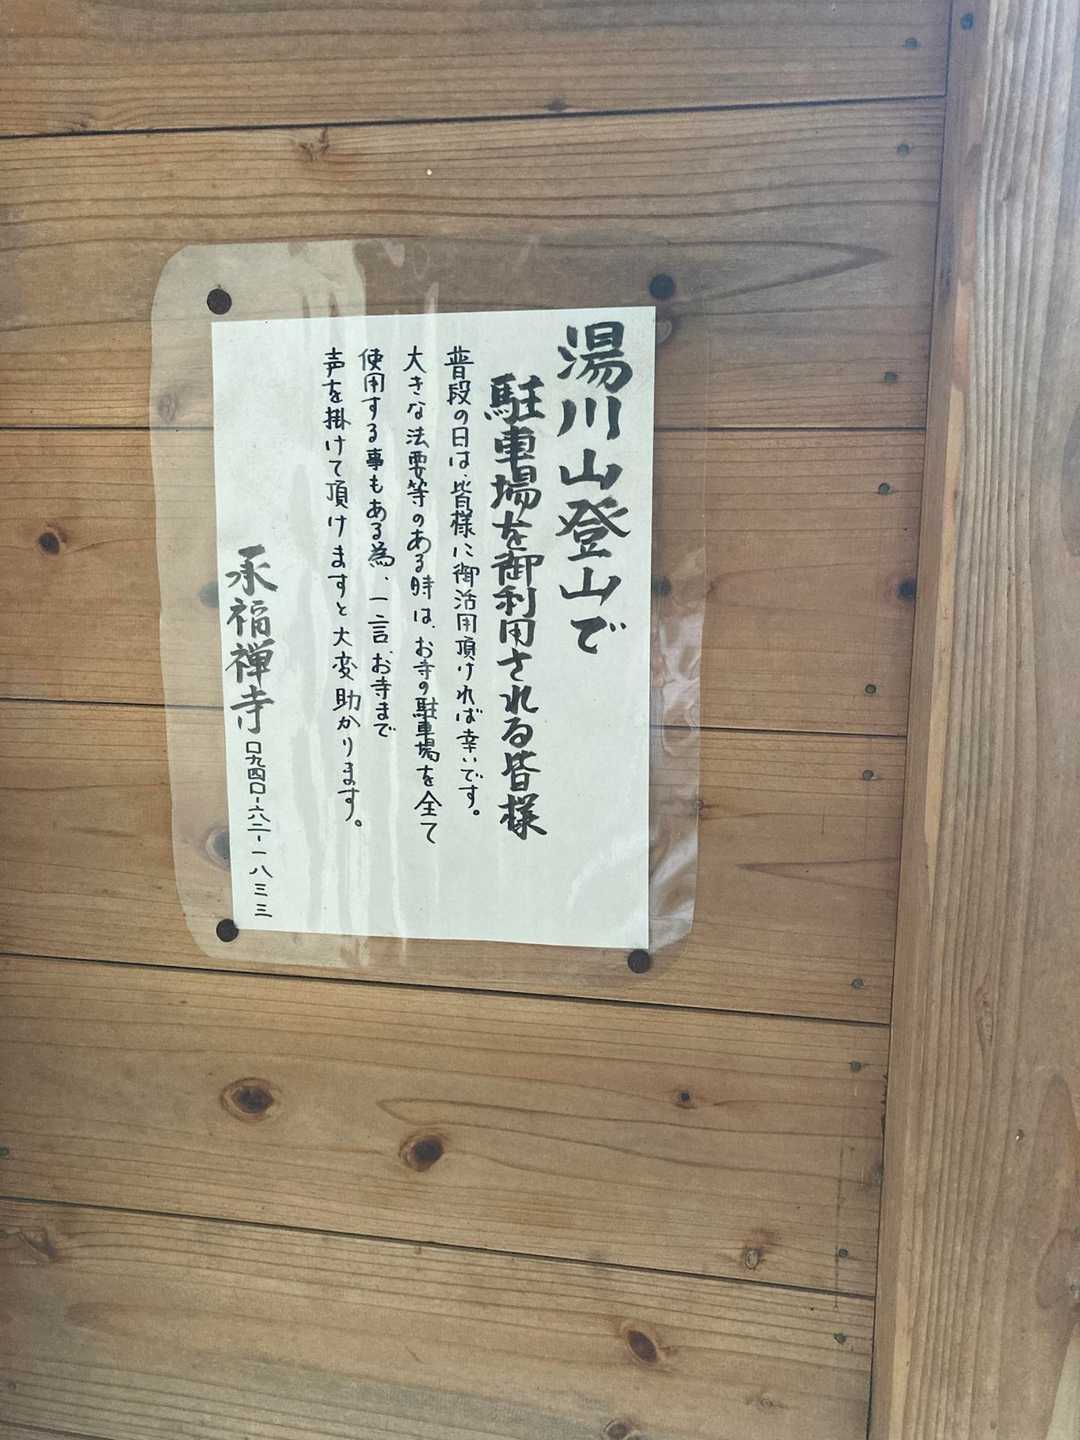 湯川山登山で
駐車場を御利用される皆様
普段の日は、皆様に御活用頂ければ幸いです。
大きな法要等のある時は、お寺の駐車場を全て
使用する事もある為、一言、お寺まで
声を掛けて頂けますと大変助かります。
承福禅寺 〇九四〇-六二-一八三三